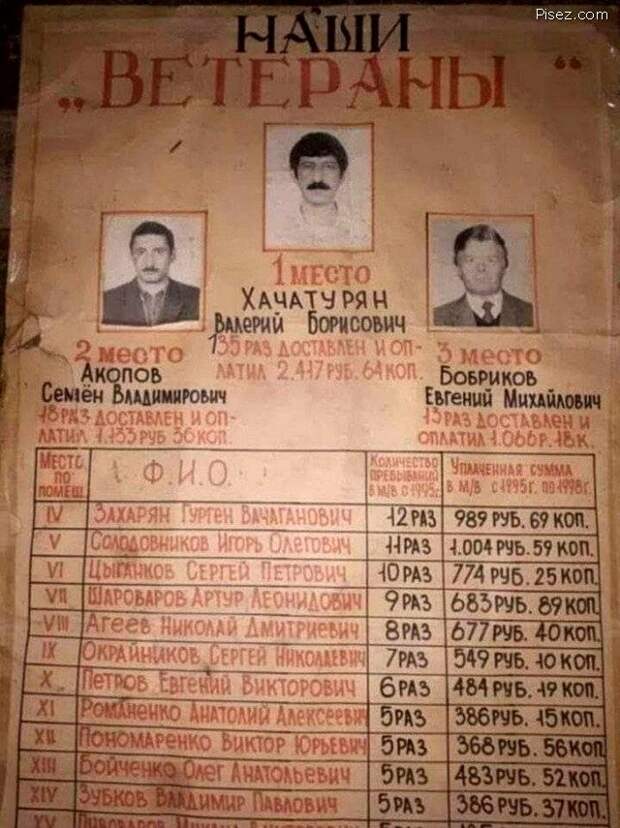 Pisez.com
НАШИ
„ВЕТЕРАНЫ“
1 МЕСТО
ХАЧАТУРЯН
ВАЛЕРИЙ БОРИСОВИЧ
135 РАЗ ДОСТАВЛЕН И ОП-
ЛАТИЛ 2.417 РУБ. 64 КОП.
2 МЕСТО
АКОПОВ
СЕМЁН ВЛАДИМИРОВИЧ
18 РАЗ ДОСТАВЛЕН И ОП-
ЛАТИЛ 1.133 РУБ 36 КОП.
3 МЕСТО
БОБРИКОВ
ЕВГЕНИЙ МИХАЙЛОВИЧ
13 РАЗ ДОСТАВЛЕН И
ОПЛАТИЛ 1.066 Р. 18 К.
МЕСТО ПО ПОМЕЩ. Ф.И.О. КОЛИЧЕСТВО ПРЕБЫВАНИЙ В М/В С 1995г. УПЛАЧЕННАЯ СУММА В М/В С 1995 г. ПО 1998 г.
IV ЗАХАРЯН ГУРГЕН ВАЧАГАНОВИЧ 12 РАЗ 989 РУБ. 69 КОП.
V СОЛОДОВНИКОВ ИГОРЬ ОЛЕГОВИЧ 11 РАЗ 1.004 РУБ. 59 КОП.
VI ЦЫГАНКОВ СЕРГЕЙ ПЕТРОВИЧ 10 РАЗ 774 РУБ. 25 КОП.
VII ШАРОВАРОВ АРТУР ЛЕОНИДОВИЧ 9 РАЗ 683 РУБ. 89 КОП.
VIII АГЕЕВ НИКОЛАЙ ДМИТРИЕВИЧ 8 РАЗ 677 РУБ. 40 КОП.
IX ОКРАЙНИКОВ СЕРГЕЙ НИКОЛАЕВИЧ 7 РАЗ 549 РУБ. 10 КОП.
X ПЕТРОВ ЕВГЕНИЙ ВИКТОРОВИЧ 6 РАЗ 484 РУБ. 19 КОП.
XI РОМАНЕНКО АНАТОЛИЙ АЛЕКСЕЕВИЧ 5 РАЗ 386 РУБ. 15 КОП.
XII ПОНОМАРЕНКО ВИКТОР ЮРЬЕВИЧ 5 РАЗ 368 РУБ. 56 КОП.
XIII БОЙЧЕНКО ОЛЕГ АНАТОЛЬЕВИЧ 5 РАЗ 483 РУБ. 52 КОП.
XIV ЗУБКОВ ВЛАДИМИР ПАВЛОВИЧ 5 РАЗ 386 РУБ. 37 КОП.
XV